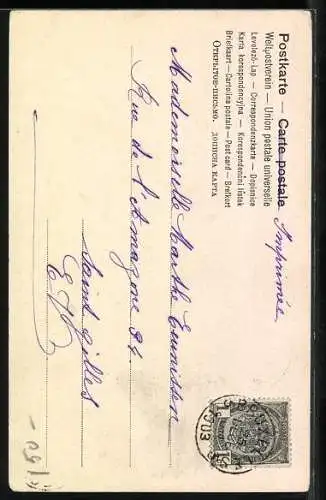 Postkarte — Carte postale
Weltpostverein — Union postale universelle
Levelező-Lap — Correspondenzkarte — Dopisnice
Karta korespondencyjna — Korespondenční lístek
Briefkaart — Cartolina postale — Post card — Brefkort
Открытое письмо. дописна карта
Imprimée
Mademoiselle Marthe
Rue de l'Amazone 34
Saint Gilles
E/V
1
1903